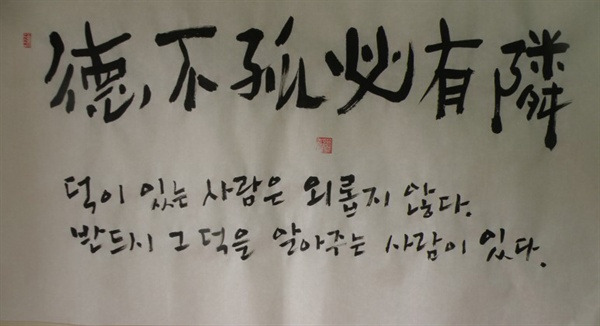 德不孤必有隣
덕이 있는 사람은 외롭지 않다.
반드시 그 덕을 알아주는 사람이 있다.